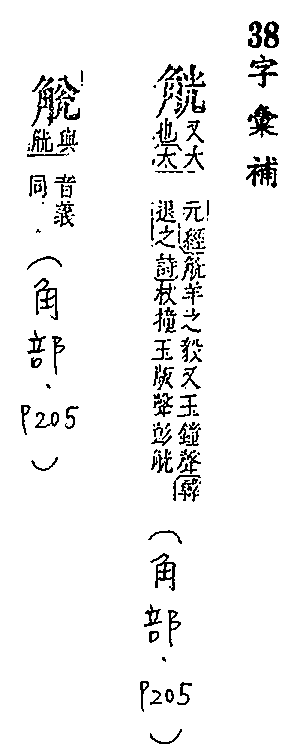 38字彙補
觥 又大
也太
元經觥羊之毅又玉鐘聲韓
退之詩杖撞玉版聲彭觥
(角部．P205)
與
觥
音義
同．
(角部．P205)